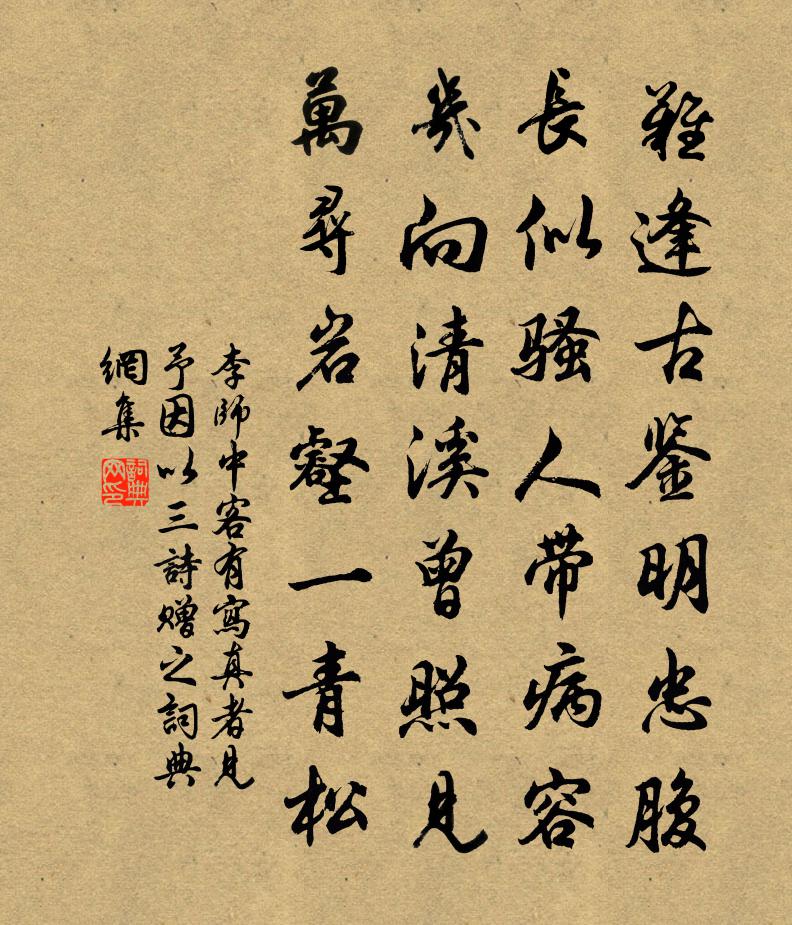 難逢古鉴明忠腹
長似骚人帶病容
幾向清溪曾照見
萬尋岩壑一青松
李師中客有寫真者見
予因以三詩赠之詞典
網集
詞典网印